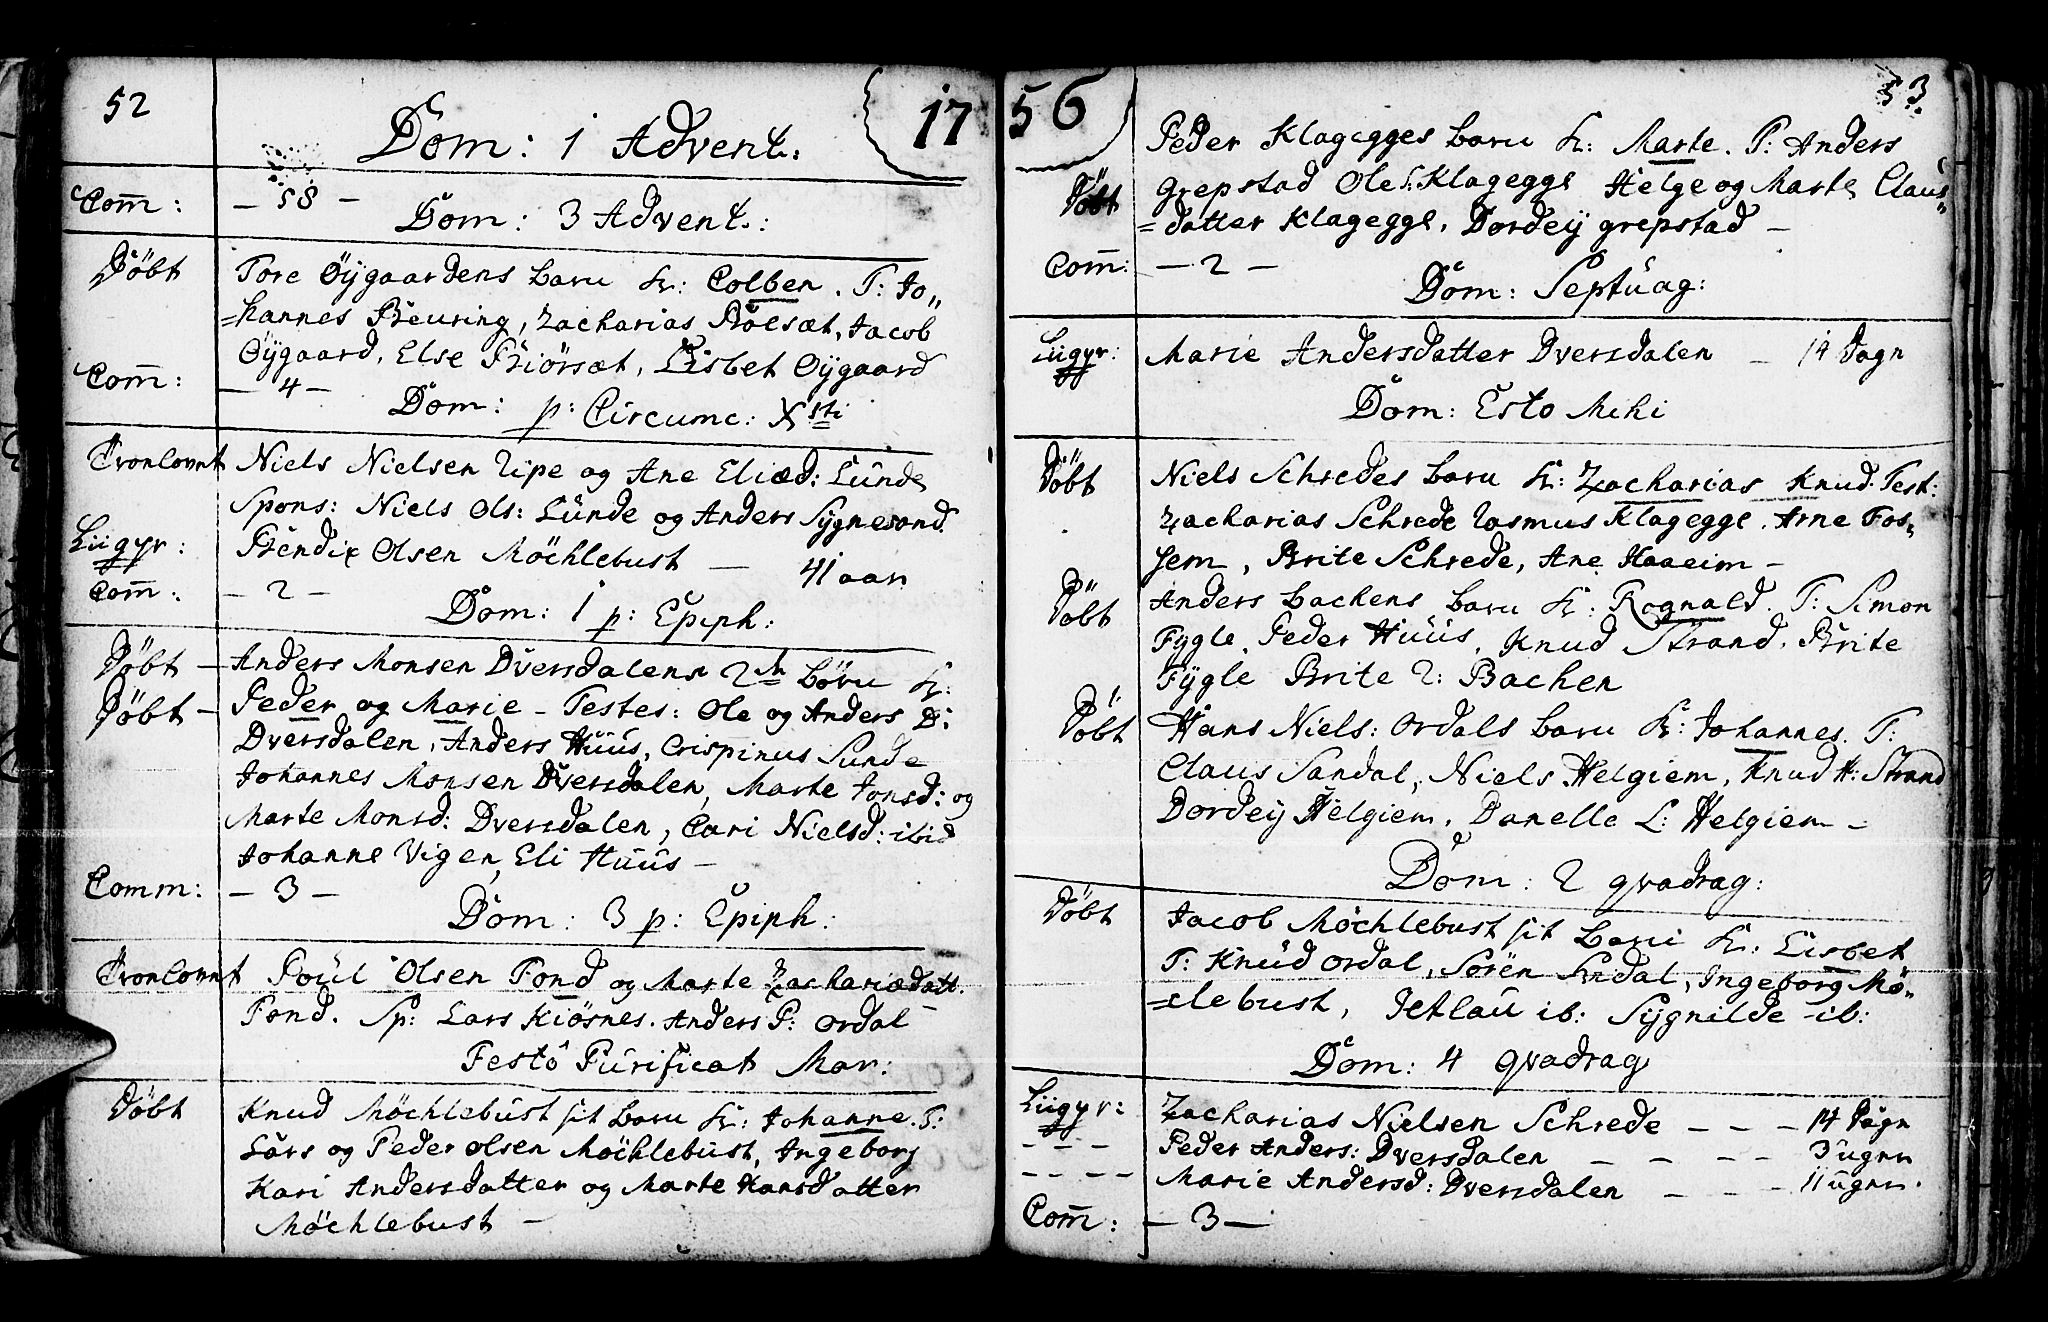 52
1756
Dom: 1 Advent:
Com̄: - 58 -
Dom: 3 Advent.:
Döbt Tore Öÿgaardens barn K: Colben. T: Jo„
=hannes Beuring, Zacharias Bölsæt, Jacob
Öÿgaard, Else Fiörsæt, Lisbet Oÿgaard
Com̄: - 4 -
Dom: p: Circumc: Xsti
Trorlovet Niels Nielsen Ripe og Ane Eliæd: Lunde
Spons: Niels Ols: Lunde og Anders Sygnesand.
Liigpr: Bendix Olsen Möchlebust - 41 aar
Com̄: - 2 -
Dom: 1 p: Epiph:
Döbt - Anders Monsen Dversdalens 2de börn K:
Döbt - Peder og Marie - Testes: Ole og Anders D:
Dversdalen, Anders Huus, Crispinus Sunde
Johannes Monsen Dversdalen, Marte Jonsd: og
Marte Monsd: Dversdalen, Cari Nielsd: ibid
Johanne Vigen, Eli Huus -
Comm: - 3 -
Dom: 3 p: Epiph:
Trorlovet Poul Olsen Fond og Marte Zachariædatt.
Fond. Sp: Lars Kiösnes. Anders P: Ordal
Festo Purificat Mar:
Döbt Knud Möchlebust sit barn K: Johanne. T:
Lars og Peder Olsen Möchlebust, Ingeborg
Kari Andersdatter og Marte Hansdatter
Möchlebust -
53.
Peder Klagegges barn K: Marte. T: Anders
Döbt Grepstad Ole S: Klagegge Helge og Marte Claus„
=datter Klagegge, Dordeÿ grepstad -
Com̄: - 2 -
Dom: Septuag:
Liigpr: Marie Andersdatter Dversdalen - 14 Dagr
Dom: Esto Mihi
Döbt Niels Schredes barn K: Zacharias Knud. Test:
Zacharias Schrede Rasmus Klagegge. Arne Fos„
hem, Brite Schrede, Ane Haaeim -
Döbt Anders Bachens barn K: Rognald. T: Simon
Fygle. Peder Huus, Knud Strand. Brite
Fÿgle Brite R: Bachen
Döbt Hans Niels: Ordals barn K: Johannes. T:
Claus Sandal, Niels Helgiem, Knud H: Strand
Dordeÿ Helgiem, Danelle L: Helgiem -
Dom: 2 qvadrag:
Döbt Jacob Möchlebust sit barn K: Lisbet
T: Knud Ordal, Sören Sandal, Ingeborg Mö„
=clebust, Jetlau ib: Sÿgnilde ib:
Dom: 4 qvadrag
Liigpr: Zacharias Nielsen Schrede - - - 14 Dagr
- - - Peder Anders: Dversdalen - - - - 3 ugur
- - - - Marie Andersd: Dversdalen - - - 11 ugur.
Com̄: - 3 -